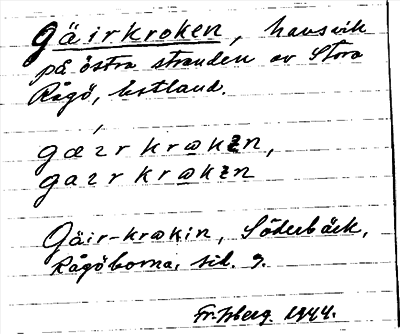 Gäirkroken, havsvik
på östra stranden av Stora
Rågö, Estland.
gæɪr krɷkɪn,
gaɪr krɷkɪn
Gäir-krɷkin, Söderbäck,
Rågöborna, sid. 9.
1944.